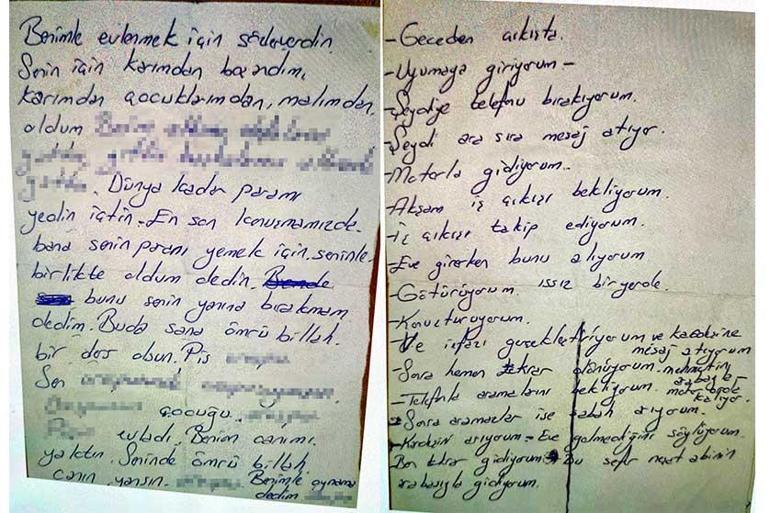 Benimle evlenmek için söz verdin
Senin için karımdan boşandım,
karımdan çocuklarımdan, malımdan,
oldum
Dünya kadar paramı
yedin içtin - En son konuşmamızde
bana senin paranı yemek için seninle
birlikte oldum dedin.
bunu senin yanına bırakmam
dedim. Buda sana ömrü billah.
bir ders olsun. Pis
Sen
çocuğu
evladı. Benim canımı.
yaktın. Seninde ömrü billah
canın yansın. Benimle oynama
dedim
- Geceden çıkışta.
- Uyumaya giriyorum -
- Seydiye telefonu bırakıyorum.
- Seydi ara sıra mesaj atıyor.
- Motorla gidiyorum..
- Akşam iş çıkışı bekliyorum.
- iş çıkışı takip ediyorum.
- Eve girerken bunu alıyorum
- Götürüyorum. ıssız bir yerde.
- Konuşturuyorum.
- Ve infazı gerçekleştiriyorum ve kardeşine
mesaj atıyorum
- Sonra hemen tekrar dönüyorum. mehmetin
araba
- Telefonla aramalarını bekliyorum.
kalıyor.
- Sonra aramazlar ise sabah arıyorum.
- Kardeşin arıyorum - Eve gelmediğini söylüyorum.
Ben tekrar gidiyorum Bu sefer neşet abinin
arabasıyla gidiyorum.